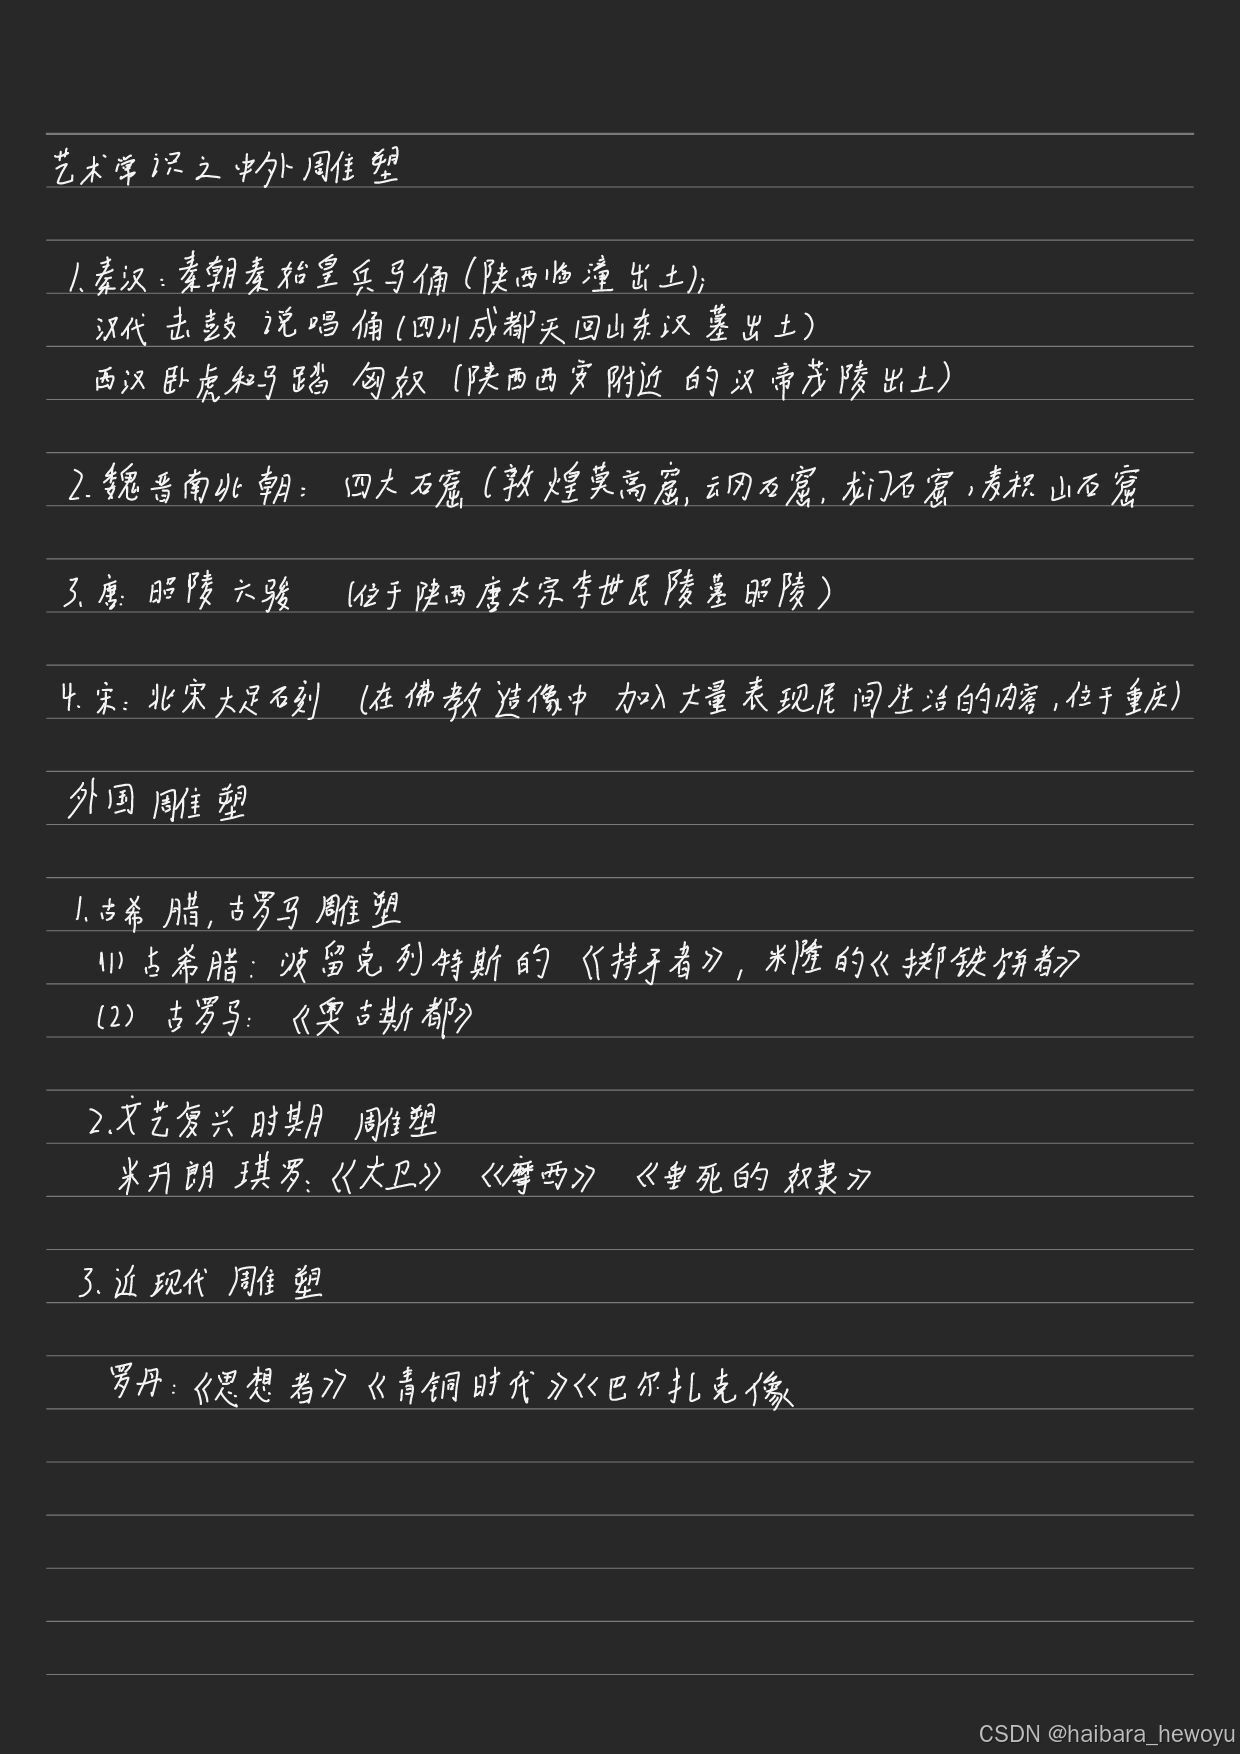 艺术常识之中外雕塑
1.秦汉：秦朝秦始皇兵马俑（陕西临潼出土）；
汉代击鼓说唱俑（四川成都天回山东汉墓出土）
西汉卧虎和马踏匈奴（陕西西安附近的汉帝茂陵出土）
2.魏晋南北朝：四大石窟（敦煌莫高窟，云冈石窟，龙门石窟，麦积山石窟
3.唐：昭陵六骏（位于陕西唐太宗李世民陵墓昭陵）
4.宋：北宋大足石刻（在佛教造像中加入大量表现民间生活的内容，位于重庆）
外国雕塑
1.古希腊，古罗马雕塑
(1)古希腊：波留克列特斯的《持矛者》，米隆的《掷铁饼者》
(2)古罗马：《奥古斯都》
2.文艺复兴时期雕塑
米开朗琪罗：《大卫》《摩西》《垂死的奴隶》
3.近现代雕塑
罗丹：《思想者》《青铜时代》《巴尔扎克像
CSDN @haibara_hewoyu